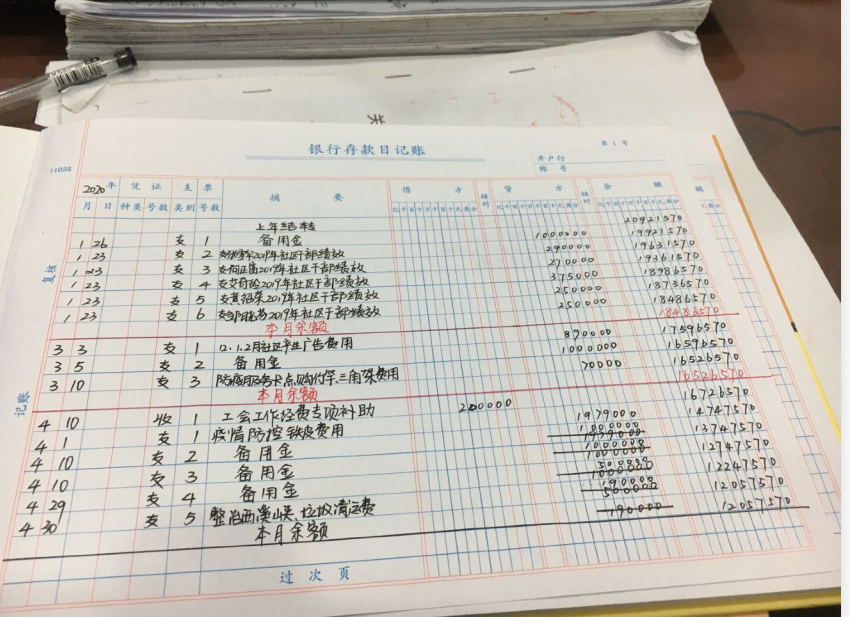 银行存款日记账
第 1 号
开户行
账号
11035
2020年 凭证 支票 摘要 借方 核对 贷方 核对 余额
月 日 种类 号数 类别 号数 亿千百十万千百十元角分 亿千百十万千百十元角分 亿千百十万千百十元角分
上年结转 20921570
1 26 支 1 备用金 1000000 19921570
1 23 支 2 2019年社区干部绩效 290000 19631570
1 23 支 3 2019年社区干部绩效 270000 19361570
1 23 支 4 2019年社区干部绩效 375000 18986570
1 23 支 5 2019年社区干部绩效 250000 18736570
1 23 支 6 2019年社区干部绩效 250000 18486570
本月余额 18486570
3 3 支 1 12.1.2月社区产生广告费用 890000 17596570
3 5 支 2 备用金 1000000 16596570
3 10 支 3 防疫服务卡点购 三角架费用 70000 16526570
本月余额 16526570
4 10 收 1 工会工作经费专项补助 200000 16726570
4 1 支 1 疫情防控铁皮费用 1979000 14747570
4 10 支 2 备用金 1000000 13747570
4 10 支 3 备用金 1000000 12747570
4 29 支 4 备用金 500000 12247570
4 30 支 5 整治西溪峡垃圾清运费 190000 12057570
本月余额 12057570
过次页
复核
记账